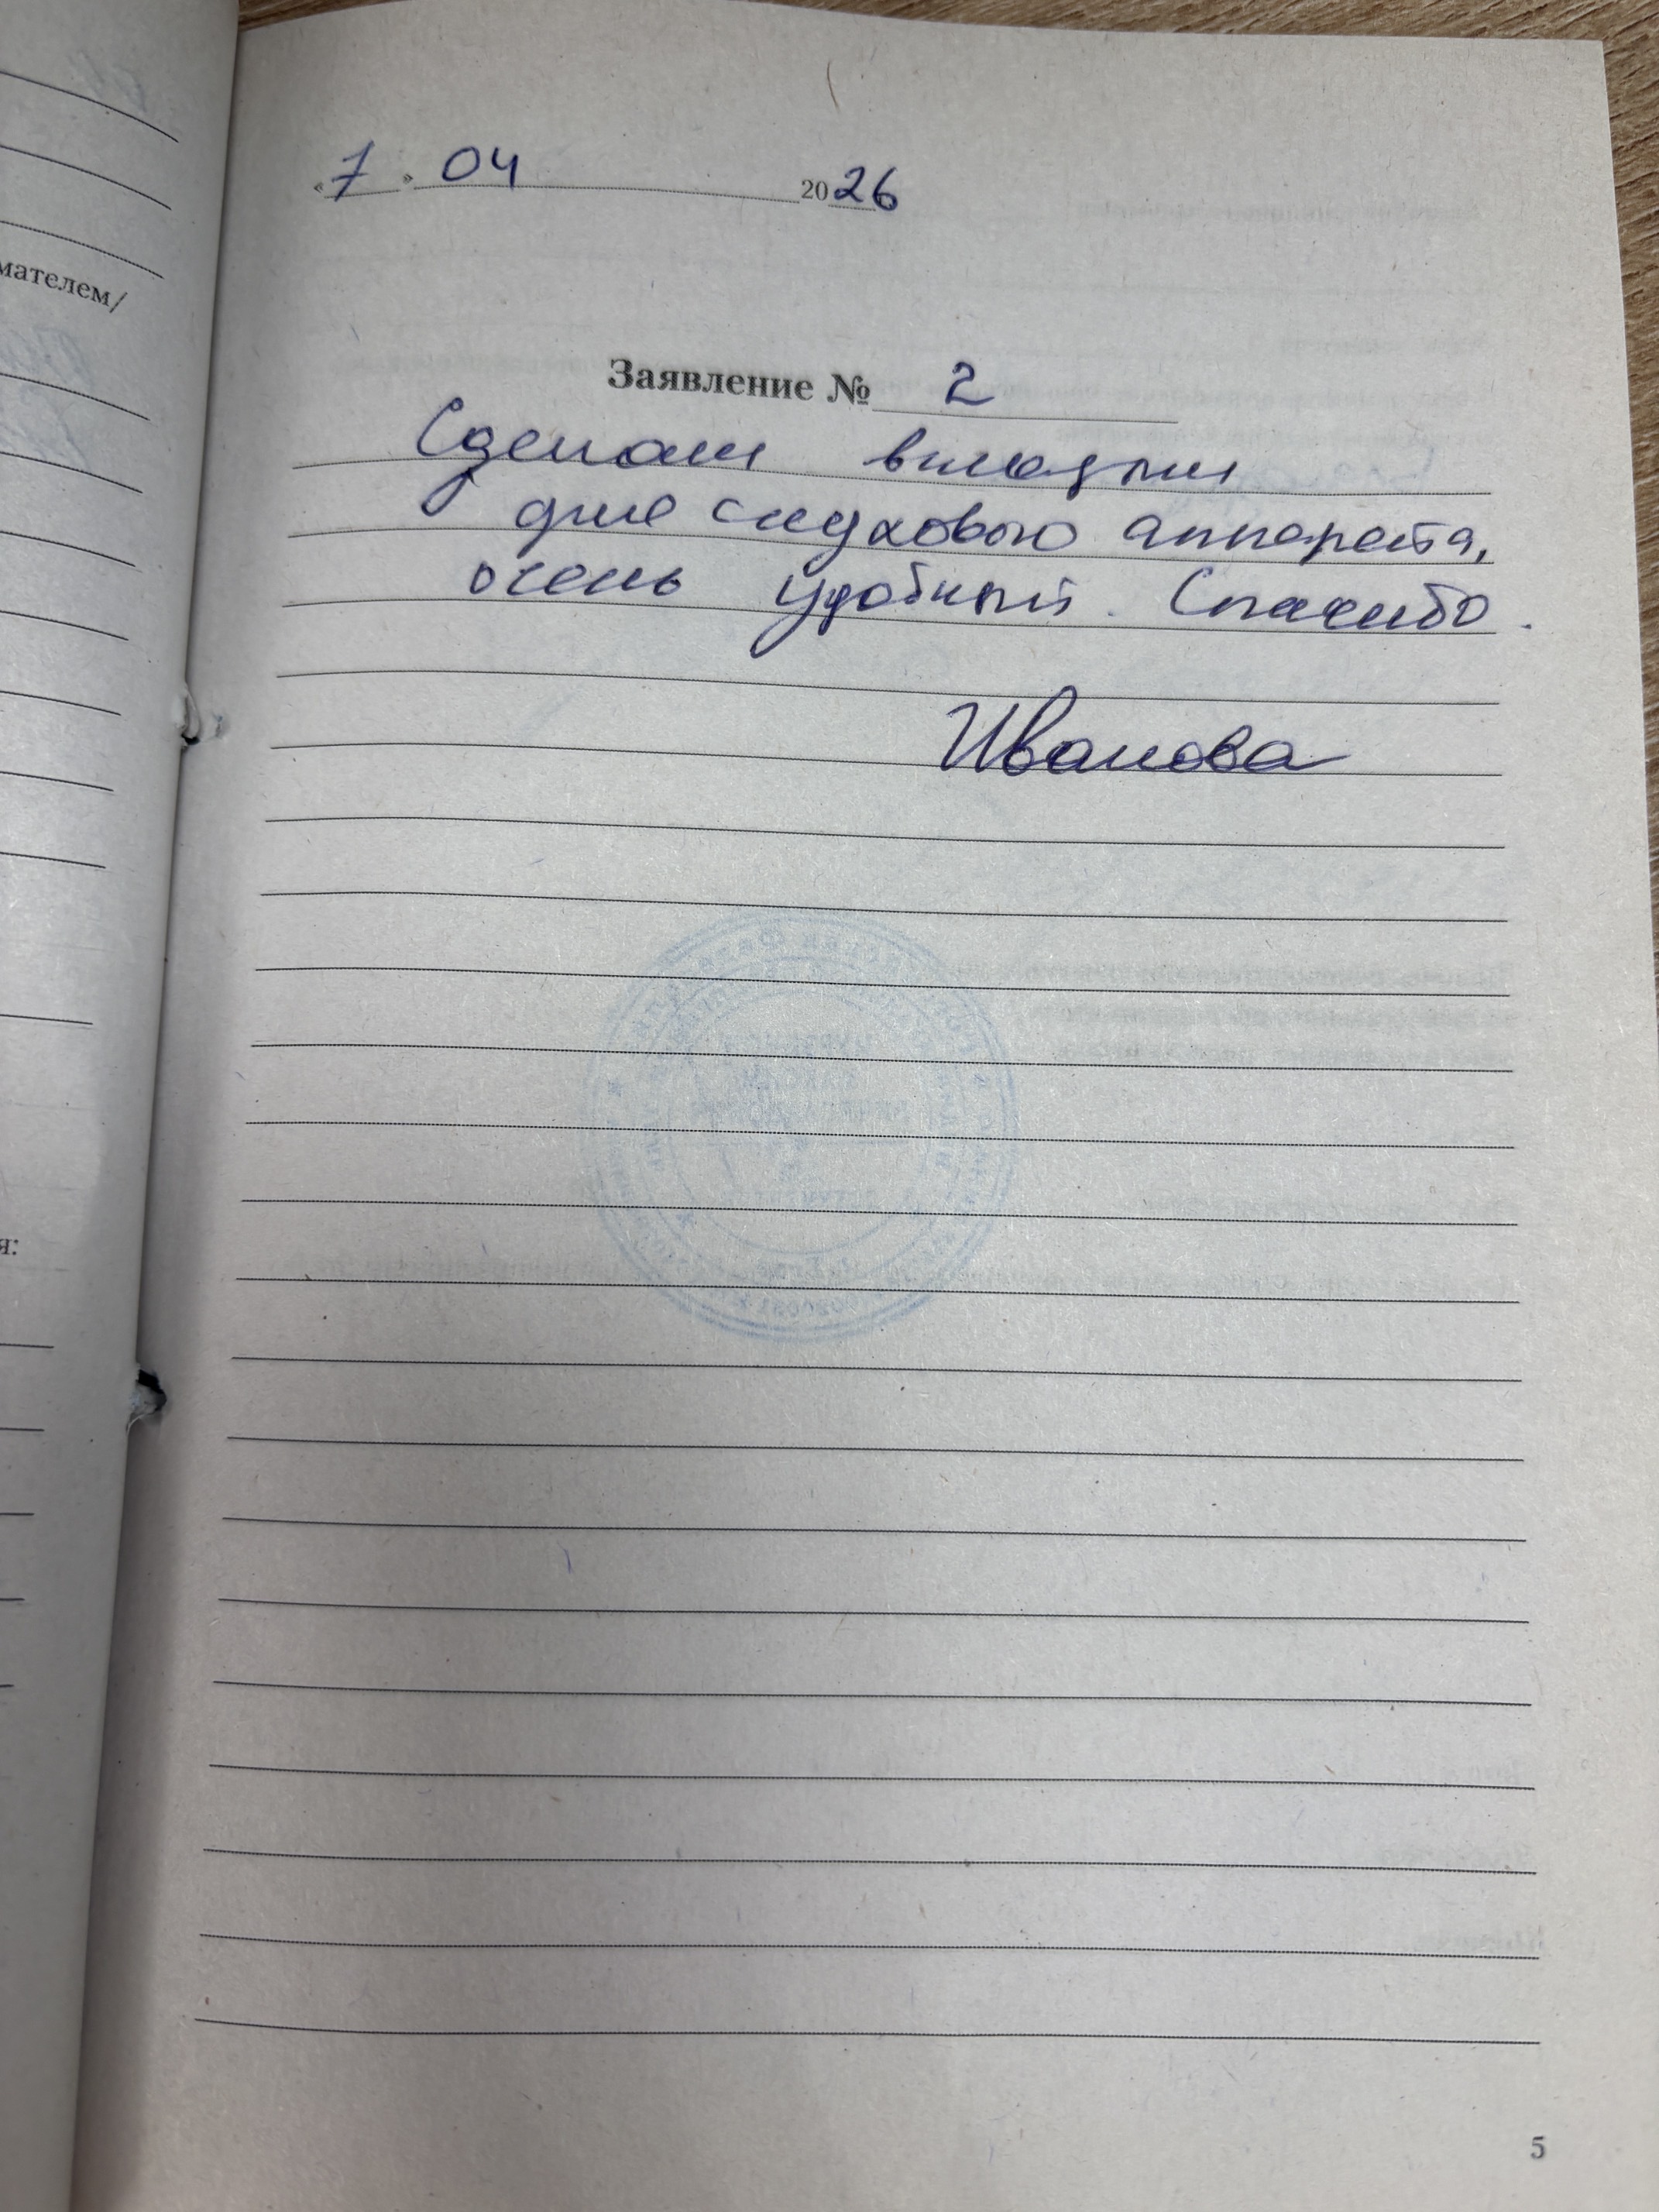 мателем/
я:
« 7 » 04 2026
Заявление № 2
Сделали вкладыш
для слухового аппарата,
очень удобный. Спасибо.
Иванова
5